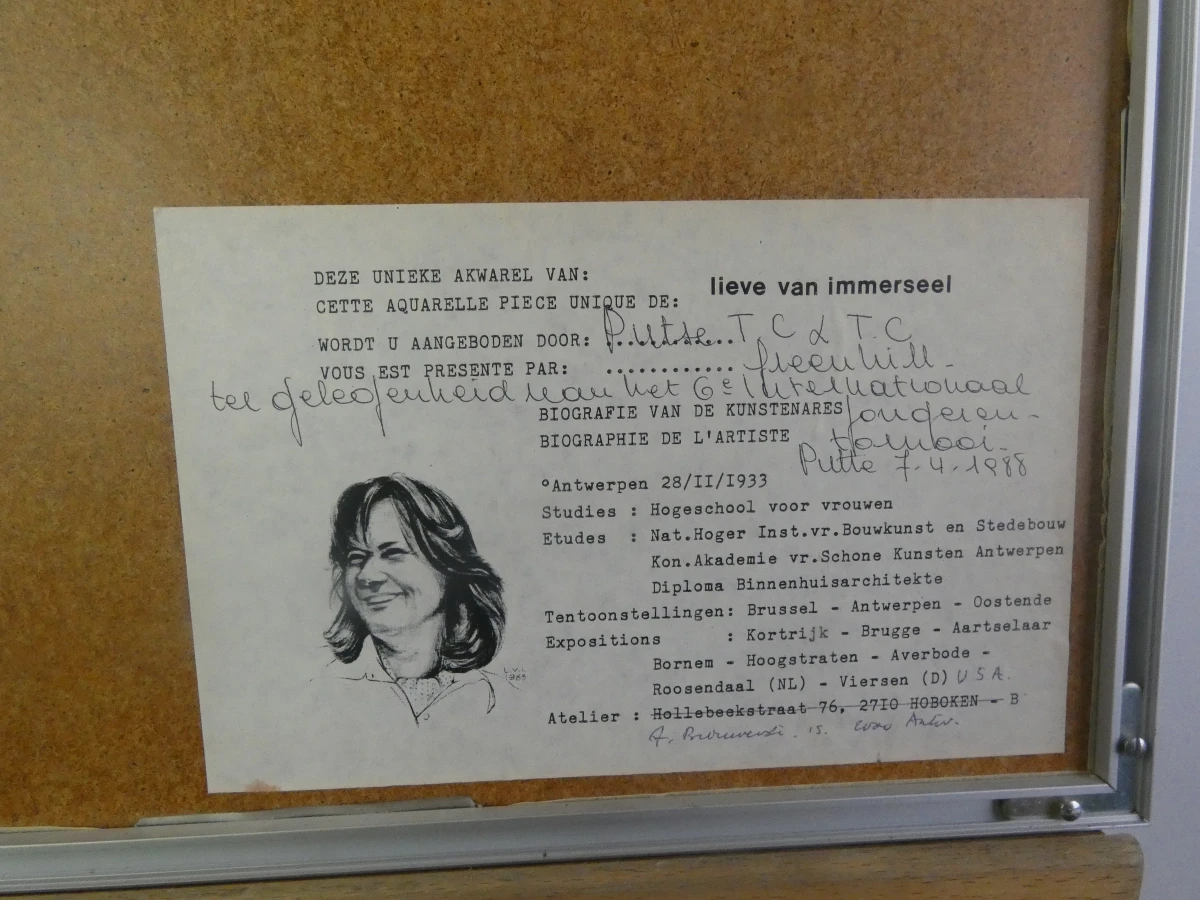 DEZE UNIEKE AKWAREL VAN:
CETTE AQUARELLE PIECE UNIQUE DE:
lieve van immerseel
WORDT U AANGEBODEN DOOR: Putse T C & T.C
VOUS EST PRESENTE PAR: ............ Greenhill -
ter gelegenheid van het 6e Internationaal
BIOGRAFIE VAN DE KUNSTENARES jongeren-
BIOGRAPHIE DE L'ARTISTE tornooi.
Putte 7.4.1988
°Antwerpen 28/II/I933
Studies : Hogeschool voor vrouwen
Etudes : Nat.Hoger Inst.vr.Bouwkunst en Stedebouw
Kon.Akademie vr.Schone Kunsten Antwerpen
Diploma Binnenhuisarchitekte
Tentoonstellingen: Brussel - Antwerpen - Oostende
Expositions : Kortrijk - Brugge - Aartselaar
Bornem - Hoogstraten - Averbode -
Roosendaal (NL) - Viersen (D) USA.
Atelier : Hollebeekstraat 76, 27I0 HOBOKEN - B
15. Antw.
L.V.I.
1985